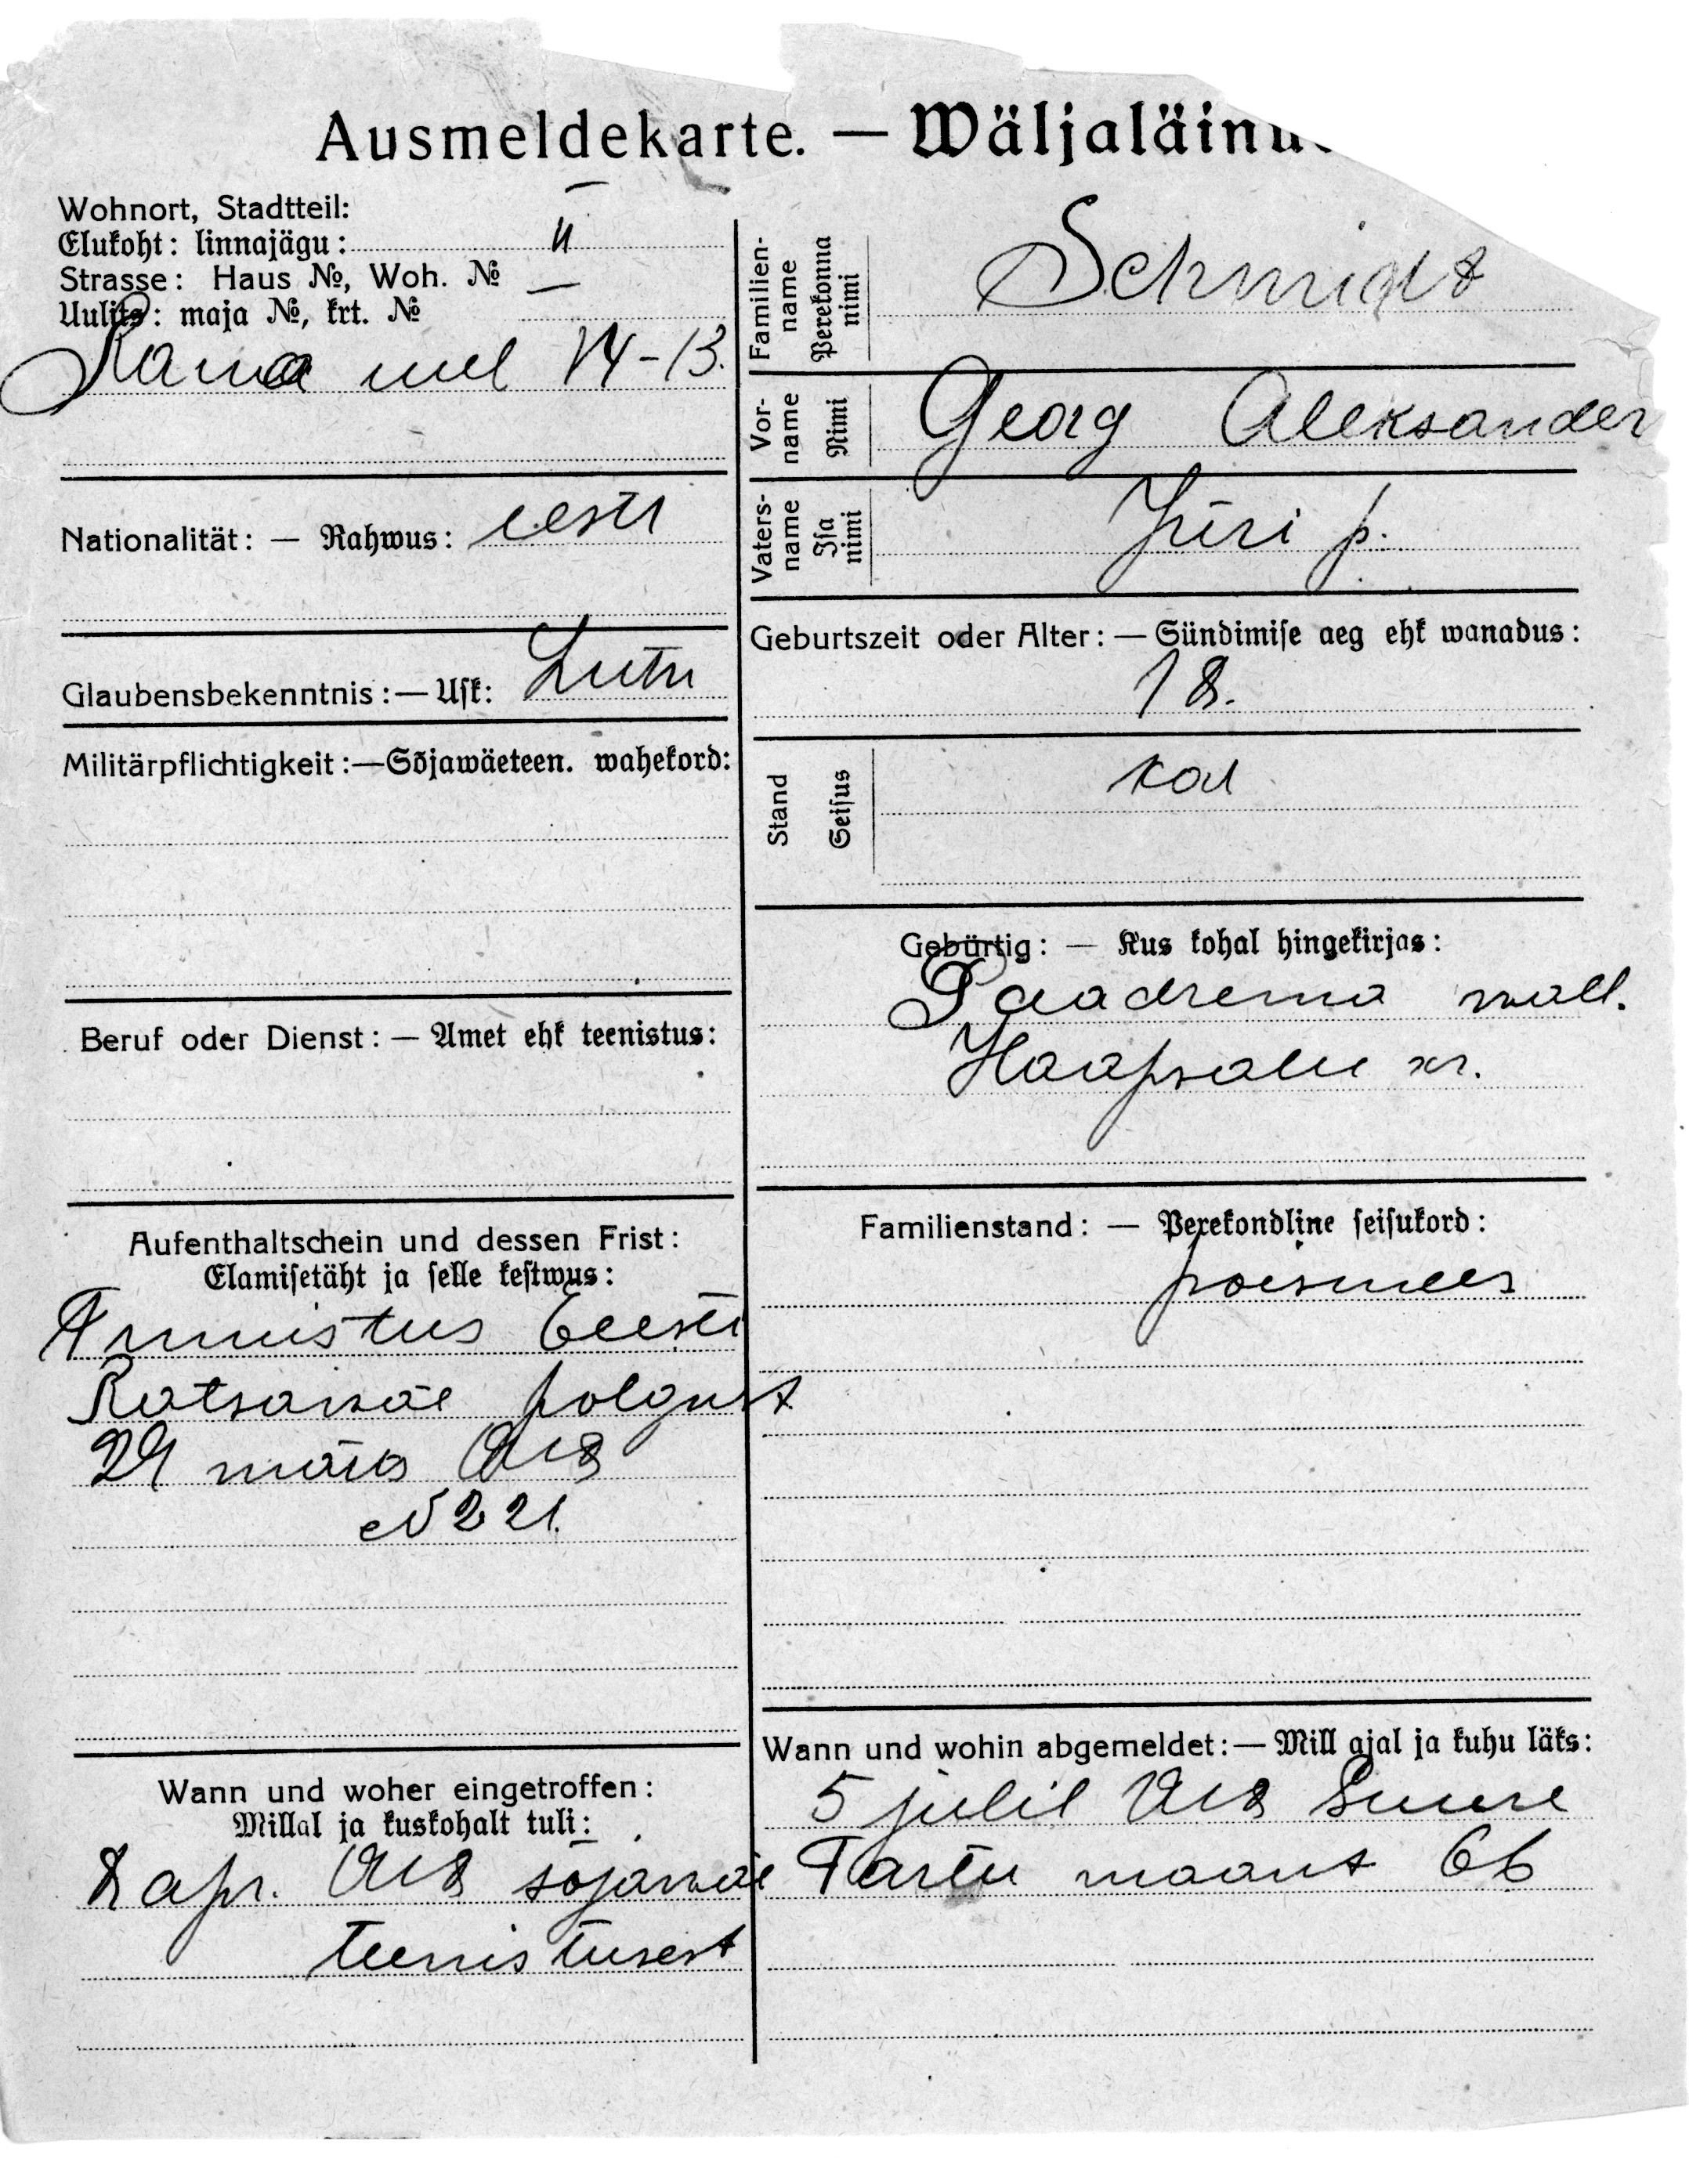 Ausmeldekarte. — Wäljaläinu
Wohnort, Stadtteil:
Elukoht: linnajägu: II
Strasse: Haus №, Woh. № —
Uulits: maja №, krt. №
14-13.
Nationalität: — Rahwus: eesti
Glaubensbekenntnis: — Usk: Lutu
Militärpflichtigkeit: — Sõjawäeteen. wahekord:
Beruf oder Dienst: — Amet ehk teenistus:
Aufenthaltschein und dessen Frist:
Elamisetäht ja selle kestwus:
Tunnistus Eeesti
Ratsawäe polgust
29 märts 1918
№ 221.
Wann und woher eingetroffen:
Millal ja kuskohalt tuli:
2 apr. 1918 sõjawäe
teenistusest
Familien-
name
Perekonna
nimi
Schmidt
Vor-
name
Nimi
Georg Aleksander
Vaters-
name
Isa
nimi
Jüri p.
Geburtszeit oder Alter: — Sündimise aeg ehk wanadus:
18.
Stand
Seisus
Gebürtig: — Kus kohal hingekirjas:
Paadrema wall.
Haapsalu kr.
Familienstand: — Perekondline seisukord:
poismees
Wann und wohin abgemeldet: — Mill ajal ja kuhu läks:
5 julil 1918 Suure
Tartu maant 66